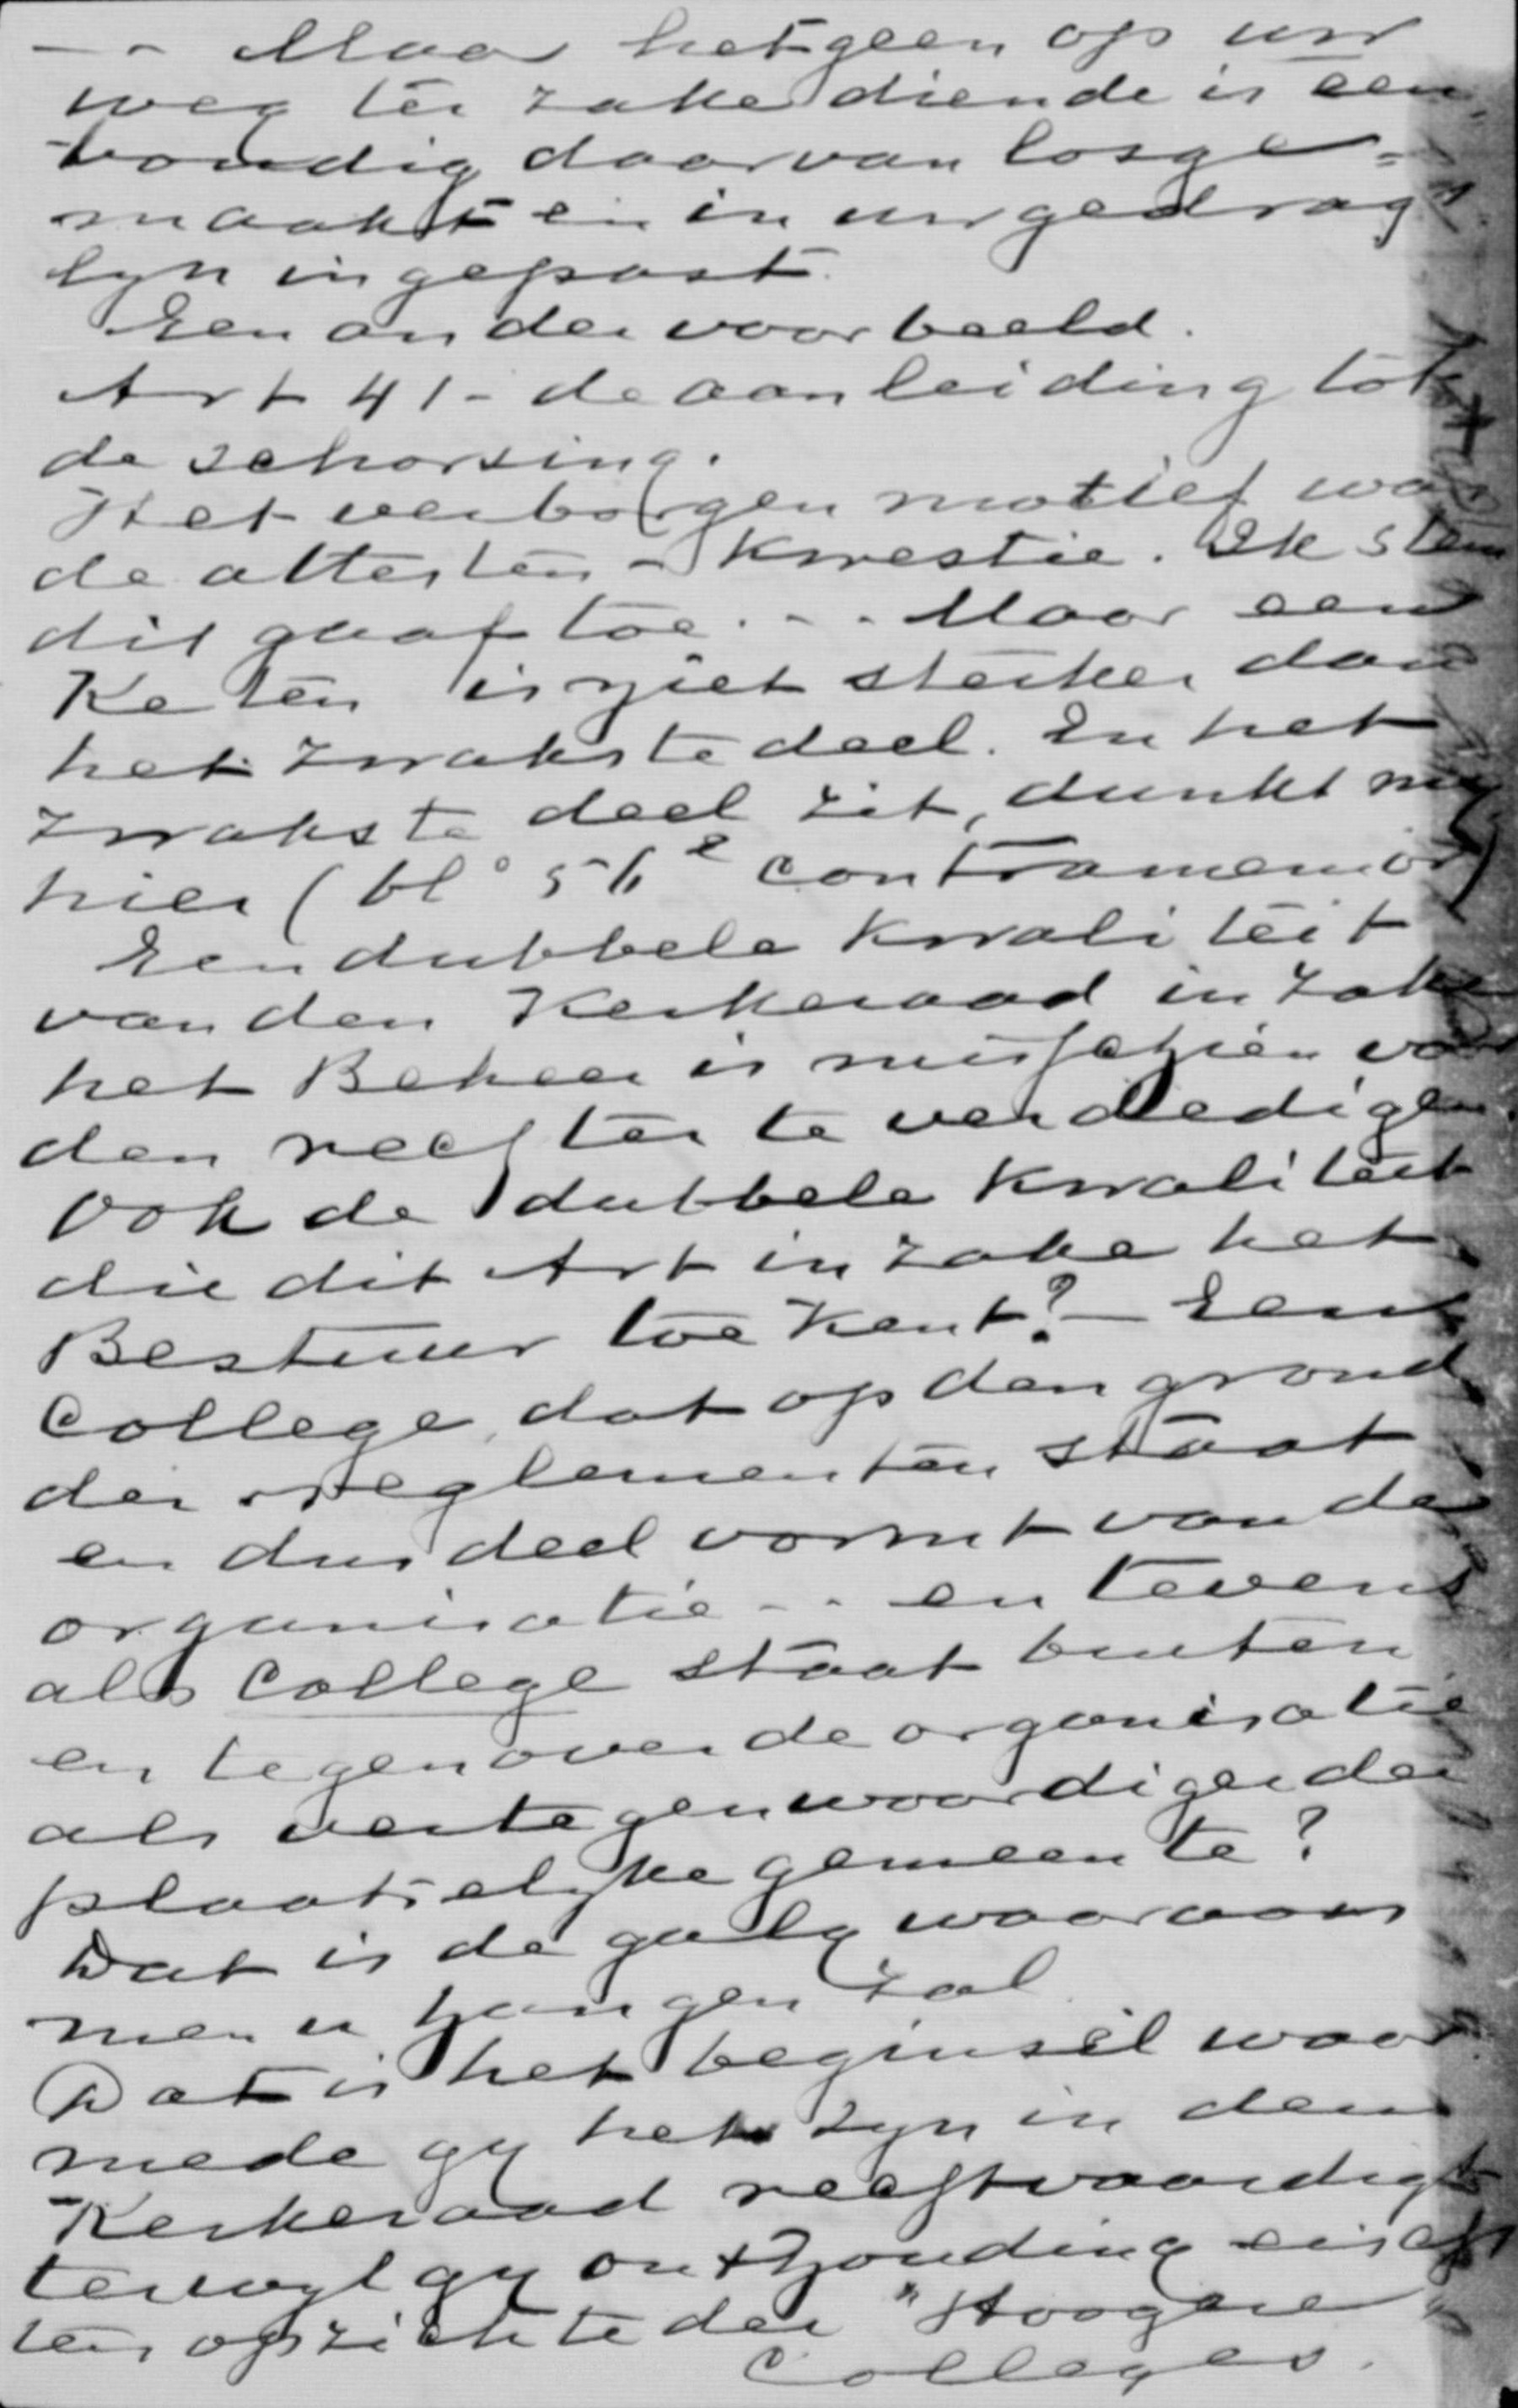 -- Maar hetgeen op uw
weg ter zake diende is een
voudig daarvan losge=
maakt en in uw gedrags
lyn ingepast.
Een ander voorbeeld.
Art 41 - de aanleiding tot
de schorsing.
Het verborgen motief was
de attesten - kwestie. Ik stem
dit gaaf toe... Maar een
Keten is niet sterker dan
het zwakste deel. In het
zwakste deel zit, dunkt my
hier (bl° 56 contramemorie)
Een dubbele kwaliteit
van den Kerkeraad in zake
het Beheer is misschien voor
den rechter te verdedigen.
Ook de dubbele kwaliteit
die dit Art in zake het
Bestuur toekent? - Een
College, dat op den grond
der reglementen staat
en dus deel vormt van de
organisatie -- en tevens
als College staat buiten
en tegenover de organisatie
als vertegenwoordiger der
plaatselyke gemeente?
Dat is de galg waaraan
men u hangen zal.
Dat is het beginsel waar
mede gy het zyn in den
Kerkeraad rechtvaardigt
terwyl gy onthouding eischt
ten opzichte der "Hoogere
Colleges.